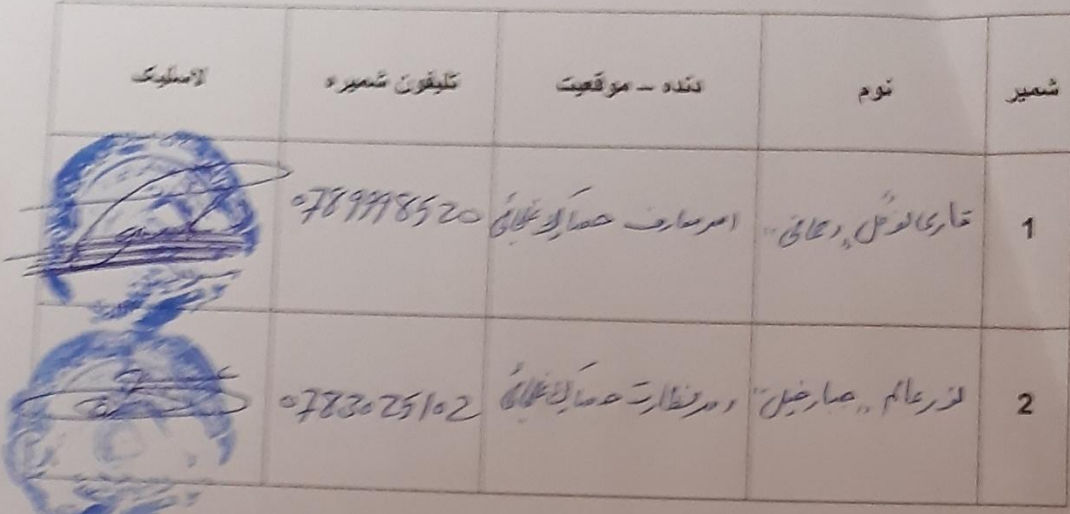 شمیر نوم دنده – موقعیت تلیفون شمیره لاسلیک
1 قاری لوګل "رحمانی" امر معارف حصارک غلجائی 0789998520
2 نور عالم "جبارخیل" مدیر نظارت حصارک غلجائی 0783025102